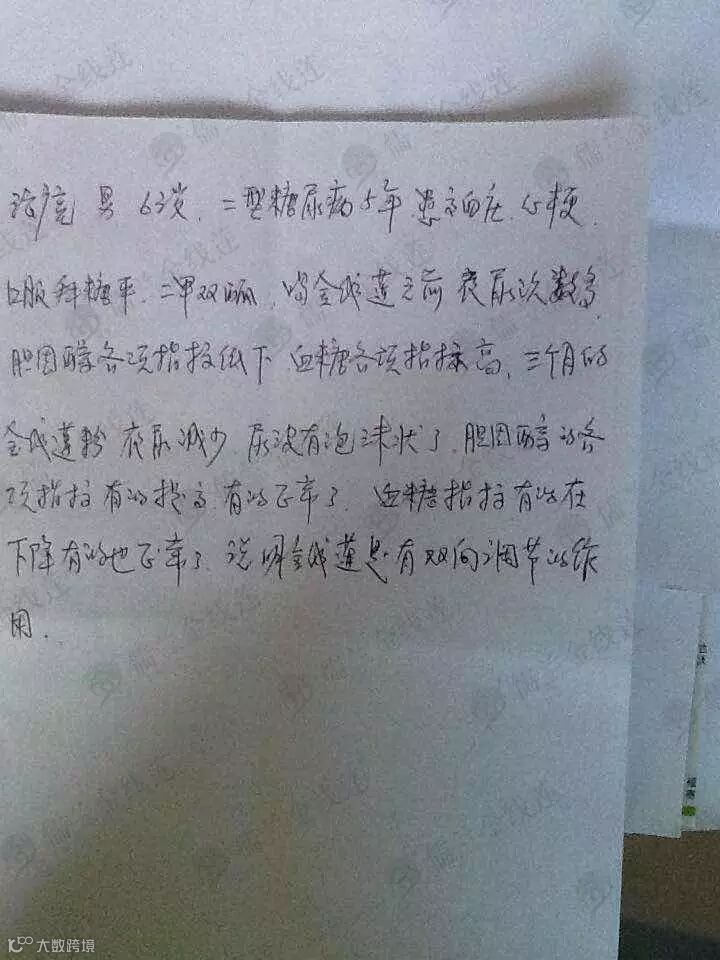 男 63岁. 二型糖尿病5年 患高血压. 心梗.
口服拜糖平. 二甲双胍. 喝金线莲之前 夜尿次数多.
胆固醇各项指标低下 血糖各项指标高, 三个月的
金线莲粉 夜尿减少 尿没有泡沫状了. 胆固醇的各
项指标 有的提高 有的正常了. 血糖指标有的在
下降有的也正常了. 说明金线莲是有双向调节的作
用.
大数跨境